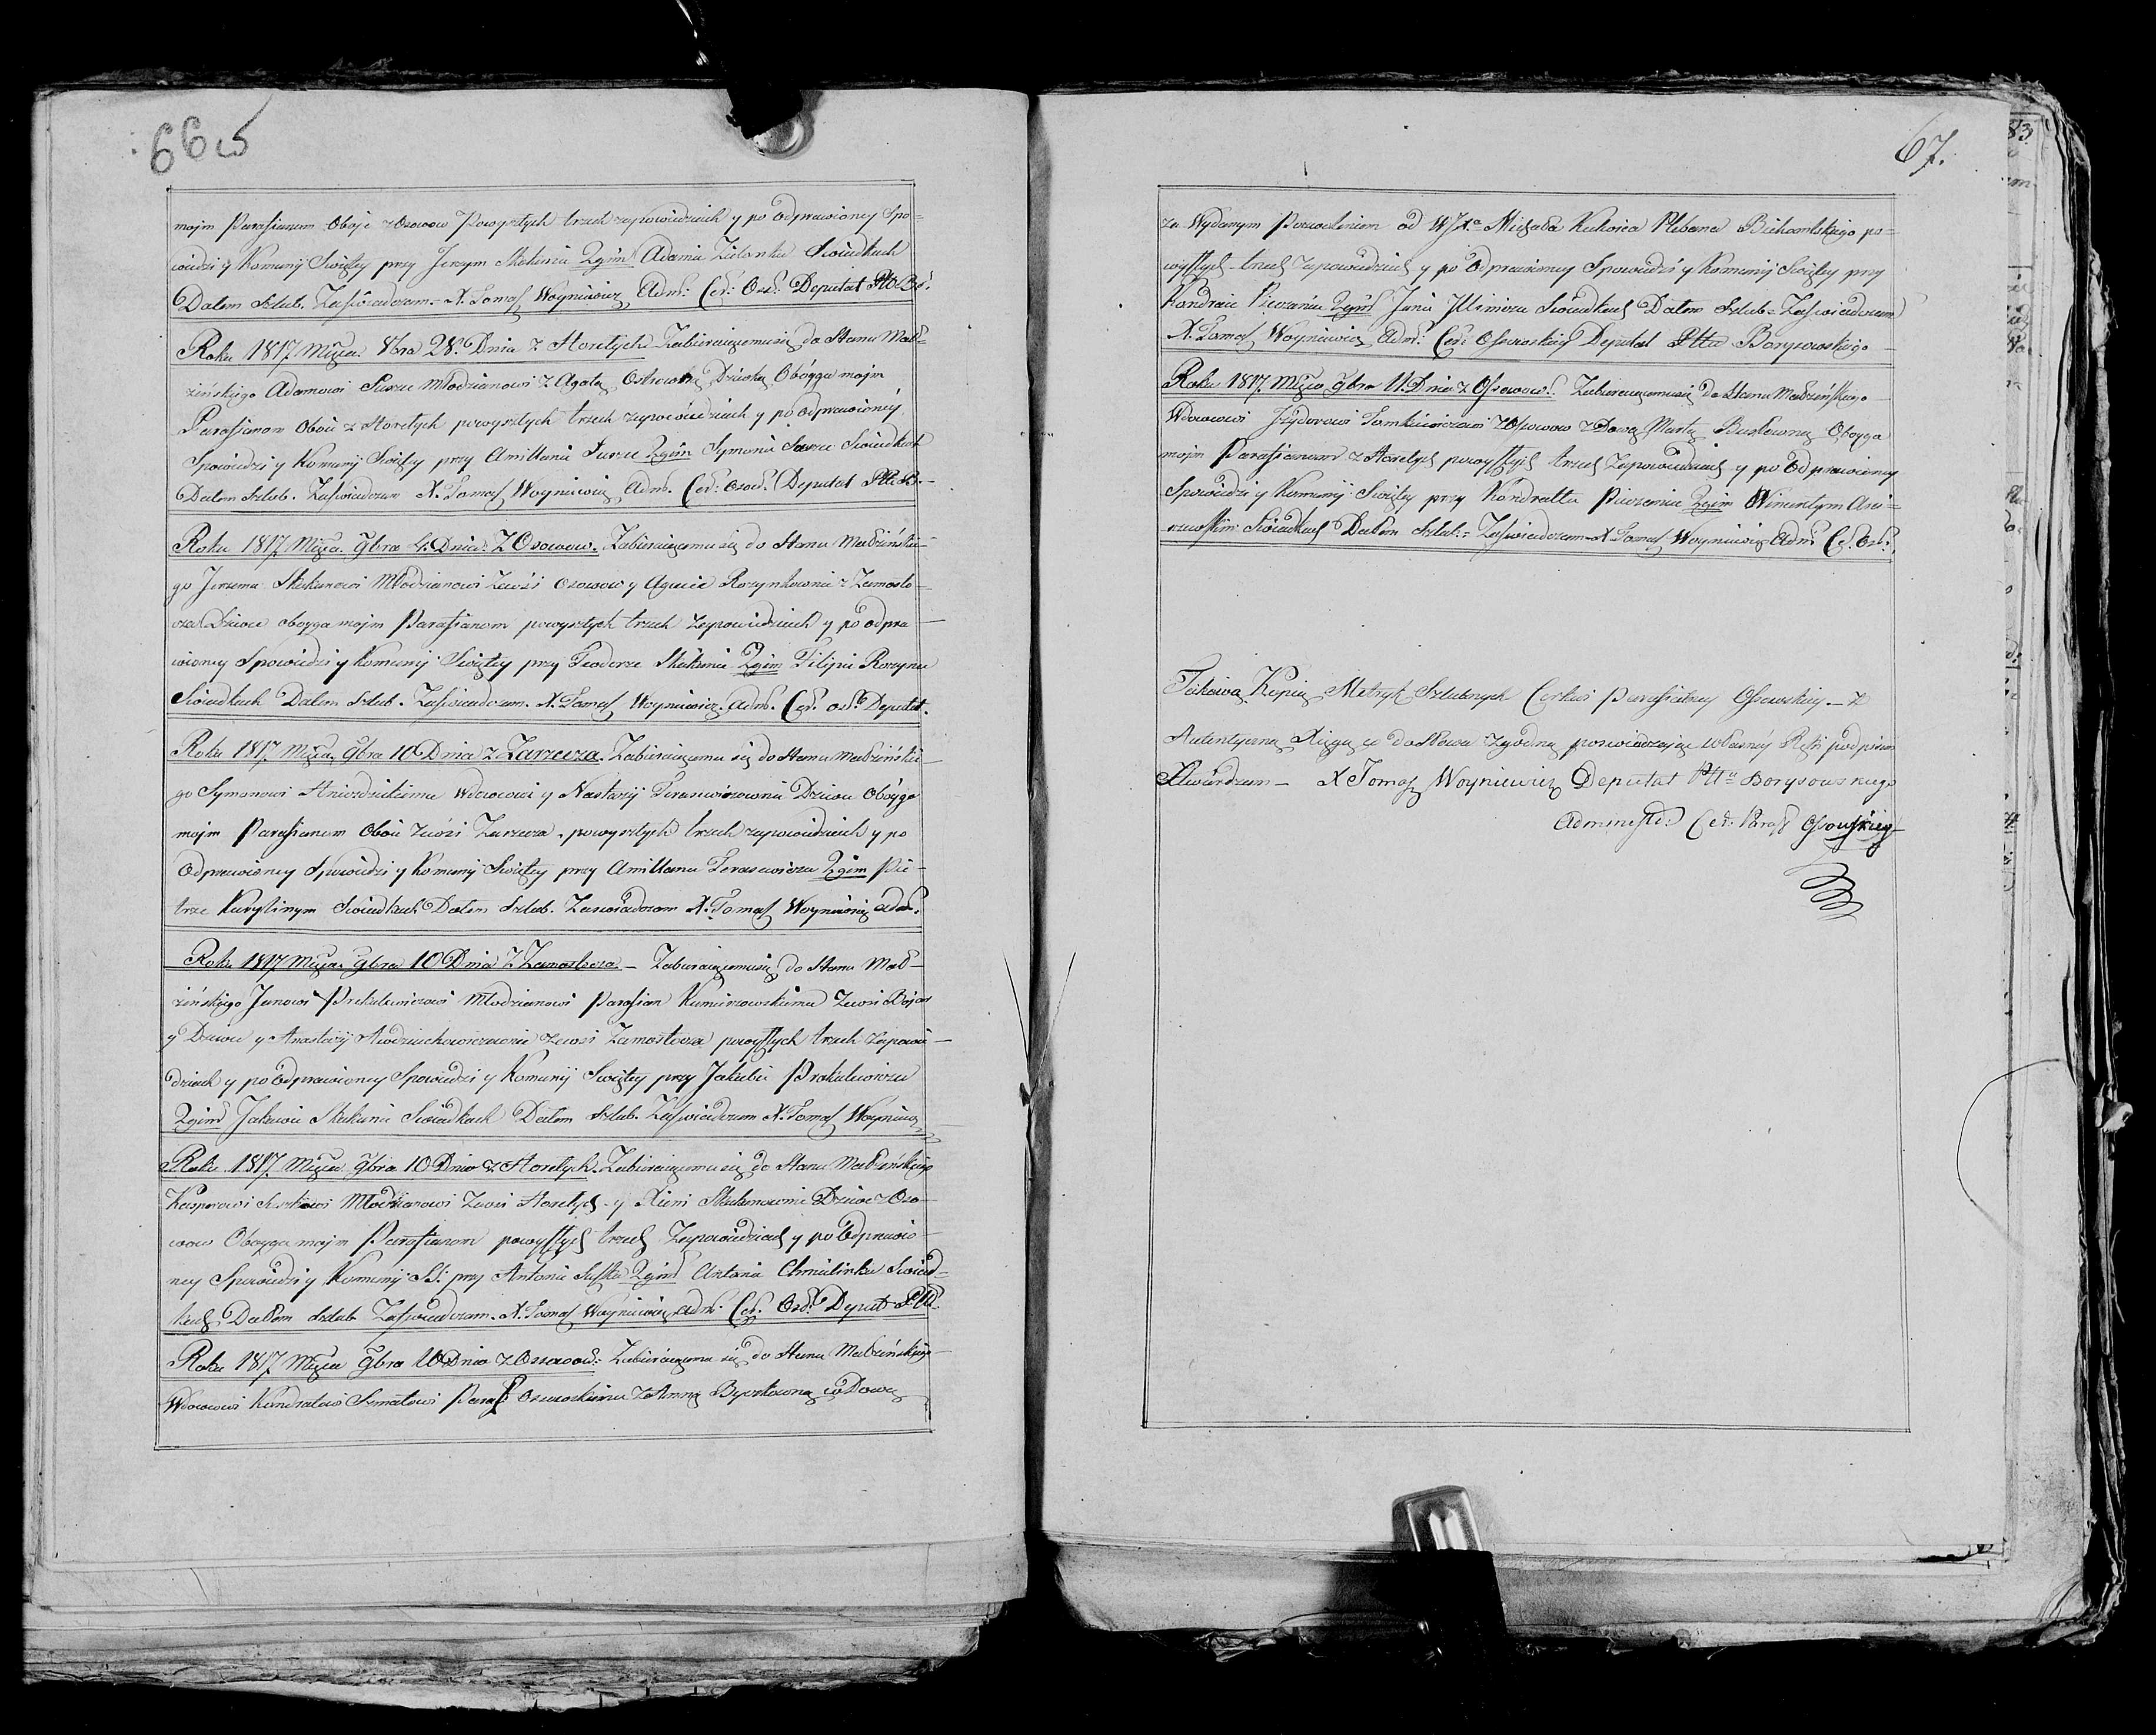 66
67.
mojm Parafianom Oboje z Osowow Powyszłych trzech zapowiedziach y po odprawioney Spo=
wiedzi y Komunij Swiętey przy Jerzym Skakunie Zgim Adamie Zielonku Swiadkach
Dałem Szlub. Zaswiadczam. X. Tomasz Woyniewicz Adm: Cer: Oso: Deputat Ptto Bo:
Roku 1817 Mięca 8bra 28. Dnia z Horełych Zabieraiącemu się do Stanu Małż=
żeńskiego Adamowi Suszu Młodzianowi z Agatą Dziewką Oboyga mojm
Parafianom Oboie z Horełych powyszłych trzech zapowiedziach y po odprawioney
Spowiedzi y Komunij Swiętey przy Amillanie Suszu Zgim Symonie Suszu Swiadkach
Dałem Szlub. Zaswiadczam X. Tomasz Woyniewicz Adm. Cer: Osow: Deputat Ptt. B.
Roku 1817 Mięca 9bra 4. Dnia z Osowow. Zabieraiącemu się do Stanu Małżeńskie=
go Jerzemu Skakunowi Młodzianowi Zewsi Osowow y Agacie Rozynkownie z Zamosto=
cza Dziewce oboyga mojm Parafianom powyszłych trzech zapowiedziach y po odpra=
wioney Spowiedzi y Komunij Swiętey przy Teodorze Skakunie Zgim Filipie Rozynce
Swiadkach Dałem Szlub. Zaswiadczam. X. Tomasz Woyniewicz. Adm. Cer. Oso. Deputat.
Roku 1817 Mięca 9bra 10 Dnia z Zarzecza. Zabieraiącemu się do Stanu Małżeńskie=
go Symonowi Wdowcowi y Nastazij Tarasewiczownie Dziewce Oboyga
mojm Parafianom Oboie Zewsi Zarzecza, powyszłych trzech zapowiedziach y po
Odprawioney Spowiedzi y Komunij Swiętey przy Amillanu Tarasewiczu Zgim Pie=
trze Kurylinym Swiadkach Dałem Szlub. Zaswiadczam X. Tomasz Woyniewicz Adm.
Roku 1817 Mięca 9bra 10 Dnia z Zamostocza – Zabieraiącemu się do Stanu Małż=
żeńskiego Janowi Prakulewiczowi Młodzianowi Parafian Zewsi
y Dziewce y Anastazij Zewsi Zamostocza powyszłych trzech Zapowie=
dziach y po odprawioney Spowiedzi y Komunij Swiętey przy Jakubie Prakulewiczu
Zgim Jakowie Skakunie Swiadkach Dałem Szlub. Zaswiadczam X. Tomasz Woyniewicz
Roku 1817 Mięca 9bra 10 Dnia z Horełych. Zabieraiącemu się do Stanu Małżeńskiego
Kasprowi Młodzianowi Zewsi Horełych y Xieni Skakunownie Dziewce z Oso=
wow Oboyga mojm Parafianom powyszłych trzech Zapowiedziach y po Odprawio=
ney Spowiedzi y Komunij SS: przy Antonie Zgim Antonie Swiad=
kach Dałem Szlub Zaswiadczam. X. Tomasz Woyniewicz Adm. Cer. Oso. Deput: Ptt.
Roku 1817 Mięca 9bra 10 Dnia z Ossowow. Zabieraiącemu się do Stanu Małżeńskiego
Wdowcowi Kondratowi Szmatowi Paraf Osowskiemu z Anną w Dową
za Wydanym Pozwoleniem od WJXa Michała Plebana po=
wyszłych trzech Zapowiedziach y po Odprawioney Spowiedzi y Komunij Swiętey przy
Kondracie Zgim Janie Swiadkach Dałem Szlub Zaswiadczam
X. Tomasz Woyniewicz Adm: Cer: Osowskiey Deputat Pttu Borysowskiego
Roku 1817 Mięca 9bra 11. Dnia z Ossowow. Zabieraiącemu się do Stanu Małżeńskiego
Wdowcowi Jzydorowi Z Osowow z Martą Oboyga
mojm Parafianom z Horełych powyszłych trzech Zapowiedziach y po Odprawioney
Spowiedzi y Komunij Swiętey przy Kondratte Zgim Wincentym
Swiadkach Dałem Szlub. Zaswiadczam X. Tomasz Woyniewicz Adm Cer. Os:
Takową Kopię Metryk Szlubnych Cerkwi Parafialney Osowskiey z
Autentyczną Xięgą co do słowa zgodną poswiadczając własney Ręki podpisem
Stwierdzam – X Tomasz Woyniewicz Deputat Pttu Borysowskiego
Cer: Paraf Osowskiey